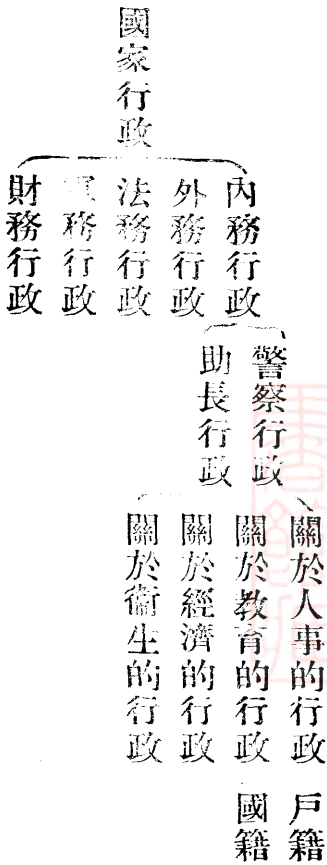 國家行政
內務行政
外務行政
法務行政
務行政
財務行政
警察行政
助長行政
關於人事的行政
關於教育的行政
關於經濟的行政
關於衞生的行政
戶籍
國籍